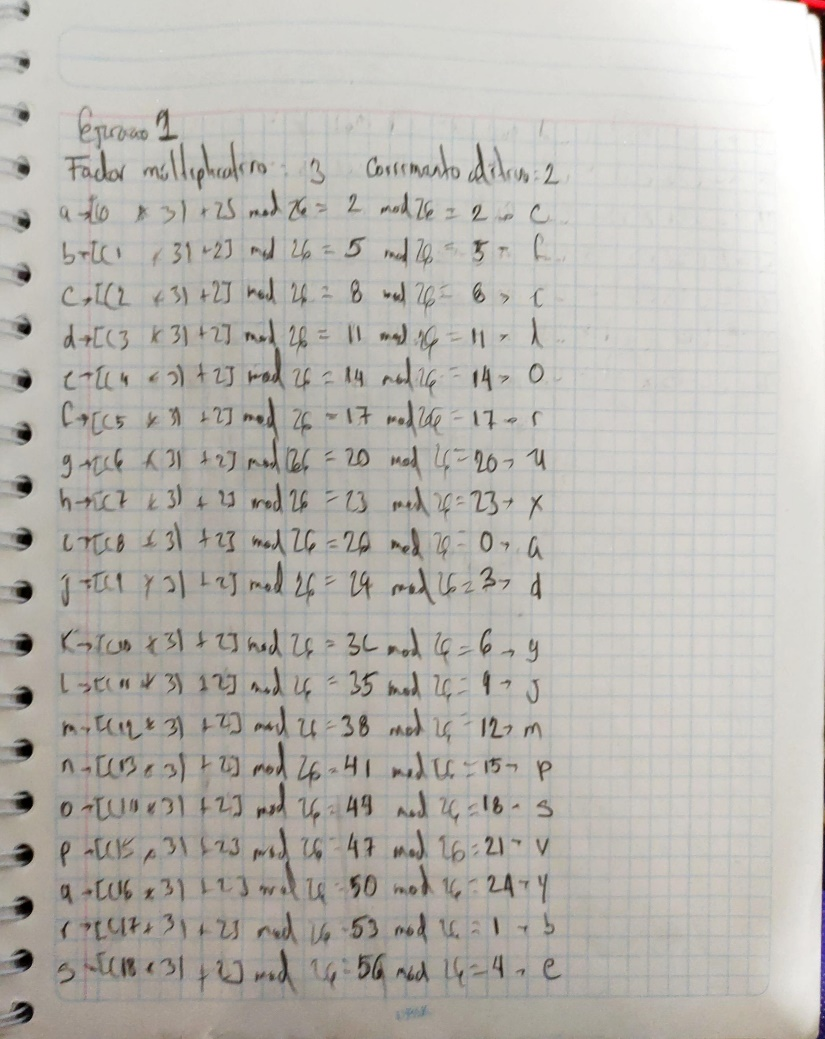 Ejercicio 1
Factor multiplicativo: 3 Corrimiento aditivo: 2
a→[(0 × 3) +2] mod 26 = 2 mod 26 = 2 → C
b→[(1 × 3) +2] mod 26 = 5 mod 26 = 5 → f
c→[(2 × 3) +2] mod 26 = 8 mod 26 = 8 → i
d→[(3 × 3) +2] mod 26 = 11 mod 26 = 11 → l
e→[(4 × 3) +2] mod 26 = 14 mod 26 = 14 → O
f→[(5 × 3) +2] mod 26 = 17 mod 26 = 17 → r
g→[(6 × 3) +2] mod 26 = 20 mod 26 = 20 → u
h→[(7 × 3) +2] mod 26 = 23 mod 26 = 23 → x
i→[(8 × 3) +2] mod 26 = 26 mod 26 = 0 → a
j→[(9 × 3) +2] mod 26 = 29 mod 26 = 3 → d
K→[(10 × 3) +2] mod 26 = 32 mod 26 = 6 → g
l→[(11 × 3) +2] mod 26 = 35 mod 26 = 9 → j
m→[(12 × 3) +2] mod 26 = 38 mod 26 = 12 → m
n→[(13 × 3) +2] mod 26 = 41 mod 26 = 15 → p
o→[(14 × 3) +2] mod 26 = 44 mod 26 = 18 → s
p→[(15 × 3) +2] mod 26 = 47 mod 26 = 21 → v
q→[(16 × 3) +2] mod 26 = 50 mod 26 = 24 → y
r→[(17 × 3) +2] mod 26 = 53 mod 26 = 1 → b
s→[(18 × 3) +2] mod 26 = 56 mod 26 = 4 → e